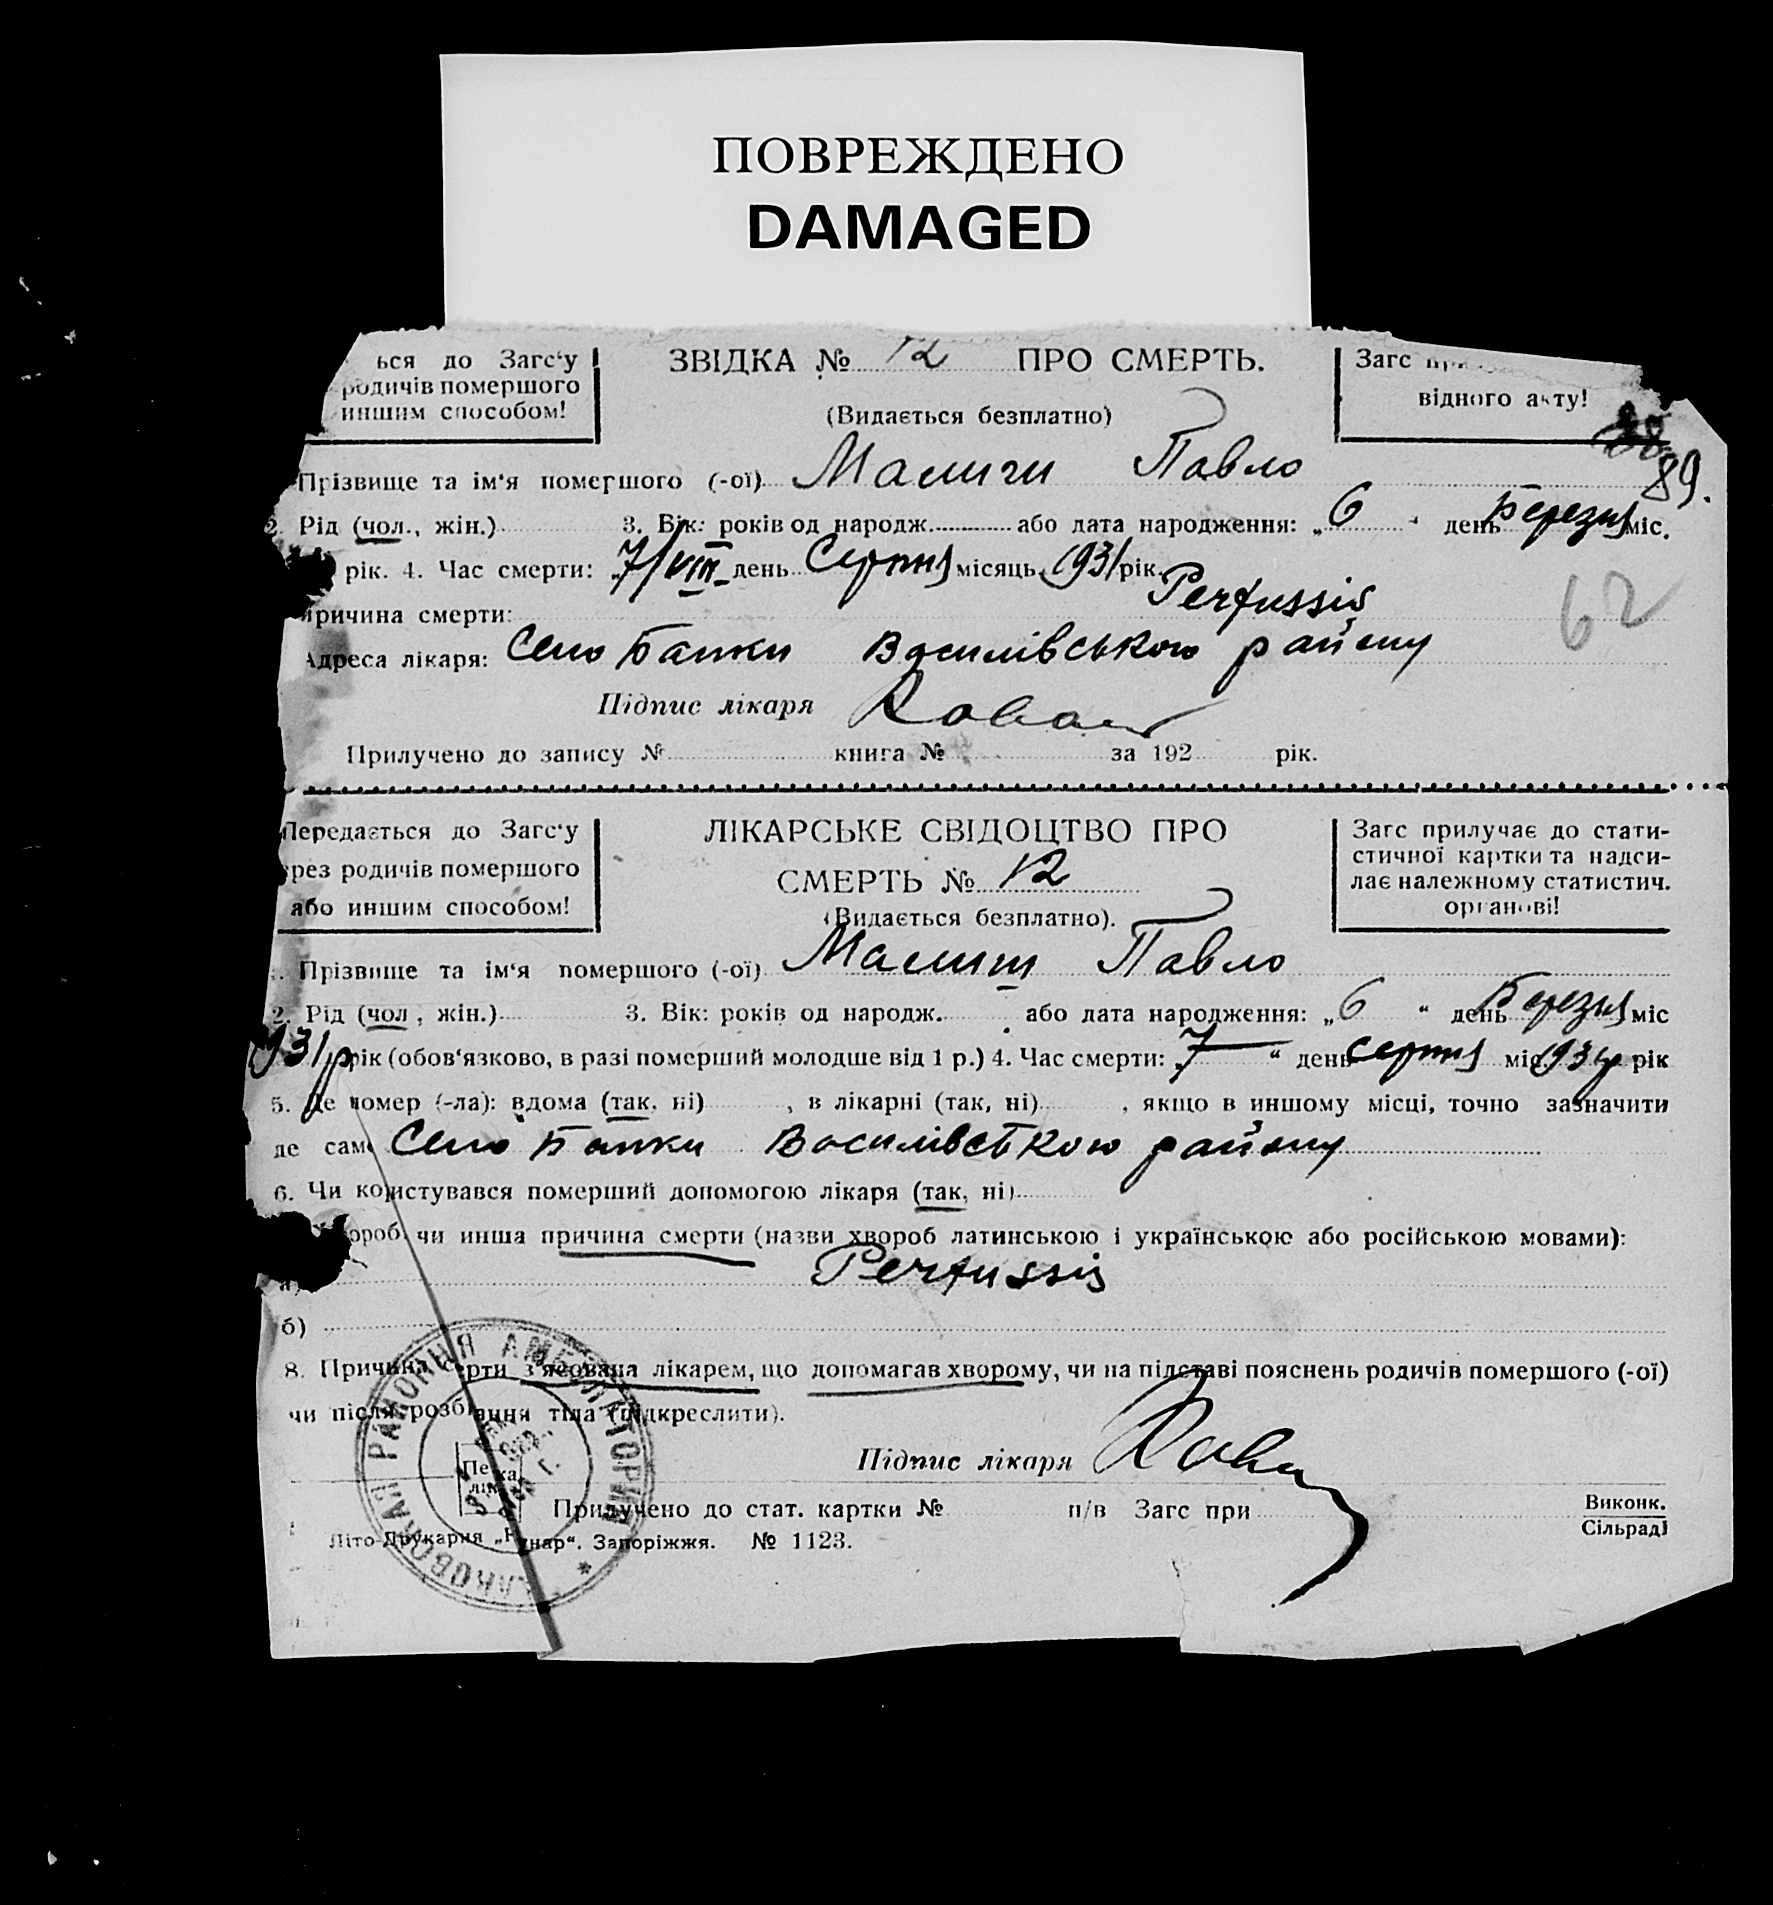 ПОВРЕЖДЕНО
DAMAGED
ься до Загс'у
родичів помершого
иншим способом!
ЗВІДКА № 12 ПРО СМЕРТЬ.
(Видається безплатно)
Загс
відного акту!
89.
Прізвище та ім'я помершого (-ої) Павло
2. Рід (чол., жін.) 3. Вік: років од народж. або дата народження: „6“ день Березня міс.
рік. 4. Час смерти: 7/VIII день Серпня місяць 1931 рік.
причина смерти: Pertussis
62
Адреса лікаря: Село Балки Василівського району
Підпис лікаря
Прилучено до запису № книга № за 192 рік.
Передається до Загс'у
рез родичів помершого
або иншим способом!
ЛІКАРСЬКЕ СВІДОЦТВО ПРО
СМЕРТЬ № 12
(Видається безплатно).
Загс прилучає до стати-
стичної картки та надси-
лає належному статистич.
органові!
Прізвище та ім'я помершого (-ої) Павло
2. Рід (чол., жін.) 3. Вік: років од народж. або дата народження: „6“ день Березня міс
931 р рік (обов'язково, в разі померший молодше від 1 р.) 4. Час смерти: „7“ день серпня міс 1931 р рік
5. Де помер (-ла): вдома (так, ні) , в лікарні (так, ні) , якщо в иншому місці, точно зазначити
де саме Село Балки Василівського району
6. Чи користувався померший допомогою лікаря (так, ні)
хвороб чи инша причина смерти (назви хвороб латинською і українською або російською мовами):
а) Pertussis
б)
8. Причина смерти з'ясована лікарем, що допомагав хворому, чи на підставі пояснень родичів помершого (-ої)
чи після розбірання тіла (підкреслити).
Підпис лікаря
РАЙОННАЯ АМБУЛАТОРИЯ
Прилучено до стат. картки № п/в Загс при Виконк.
Сільраді
Літо-Друкарня „Кунар“. Запоріжжя. № 1123.